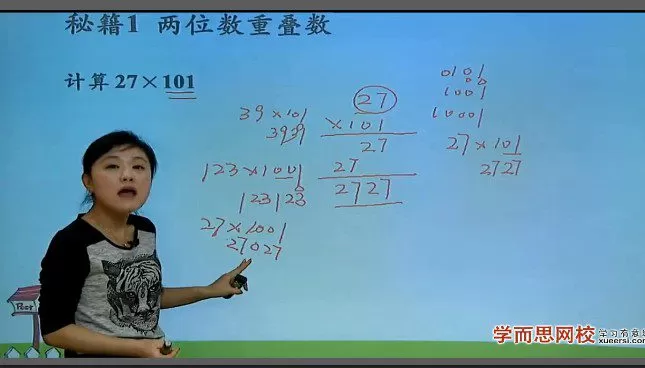 秘籍1 两位数重叠数
计算 27×101
39×101
3939
123×1001
123123
27×1001
27027
27
×101
27
27
2727
0101
00
1001
10001
27×101
2727
Post
学而思网校
学习有意
xueersi.com